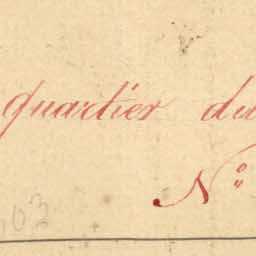 quartier du
N°